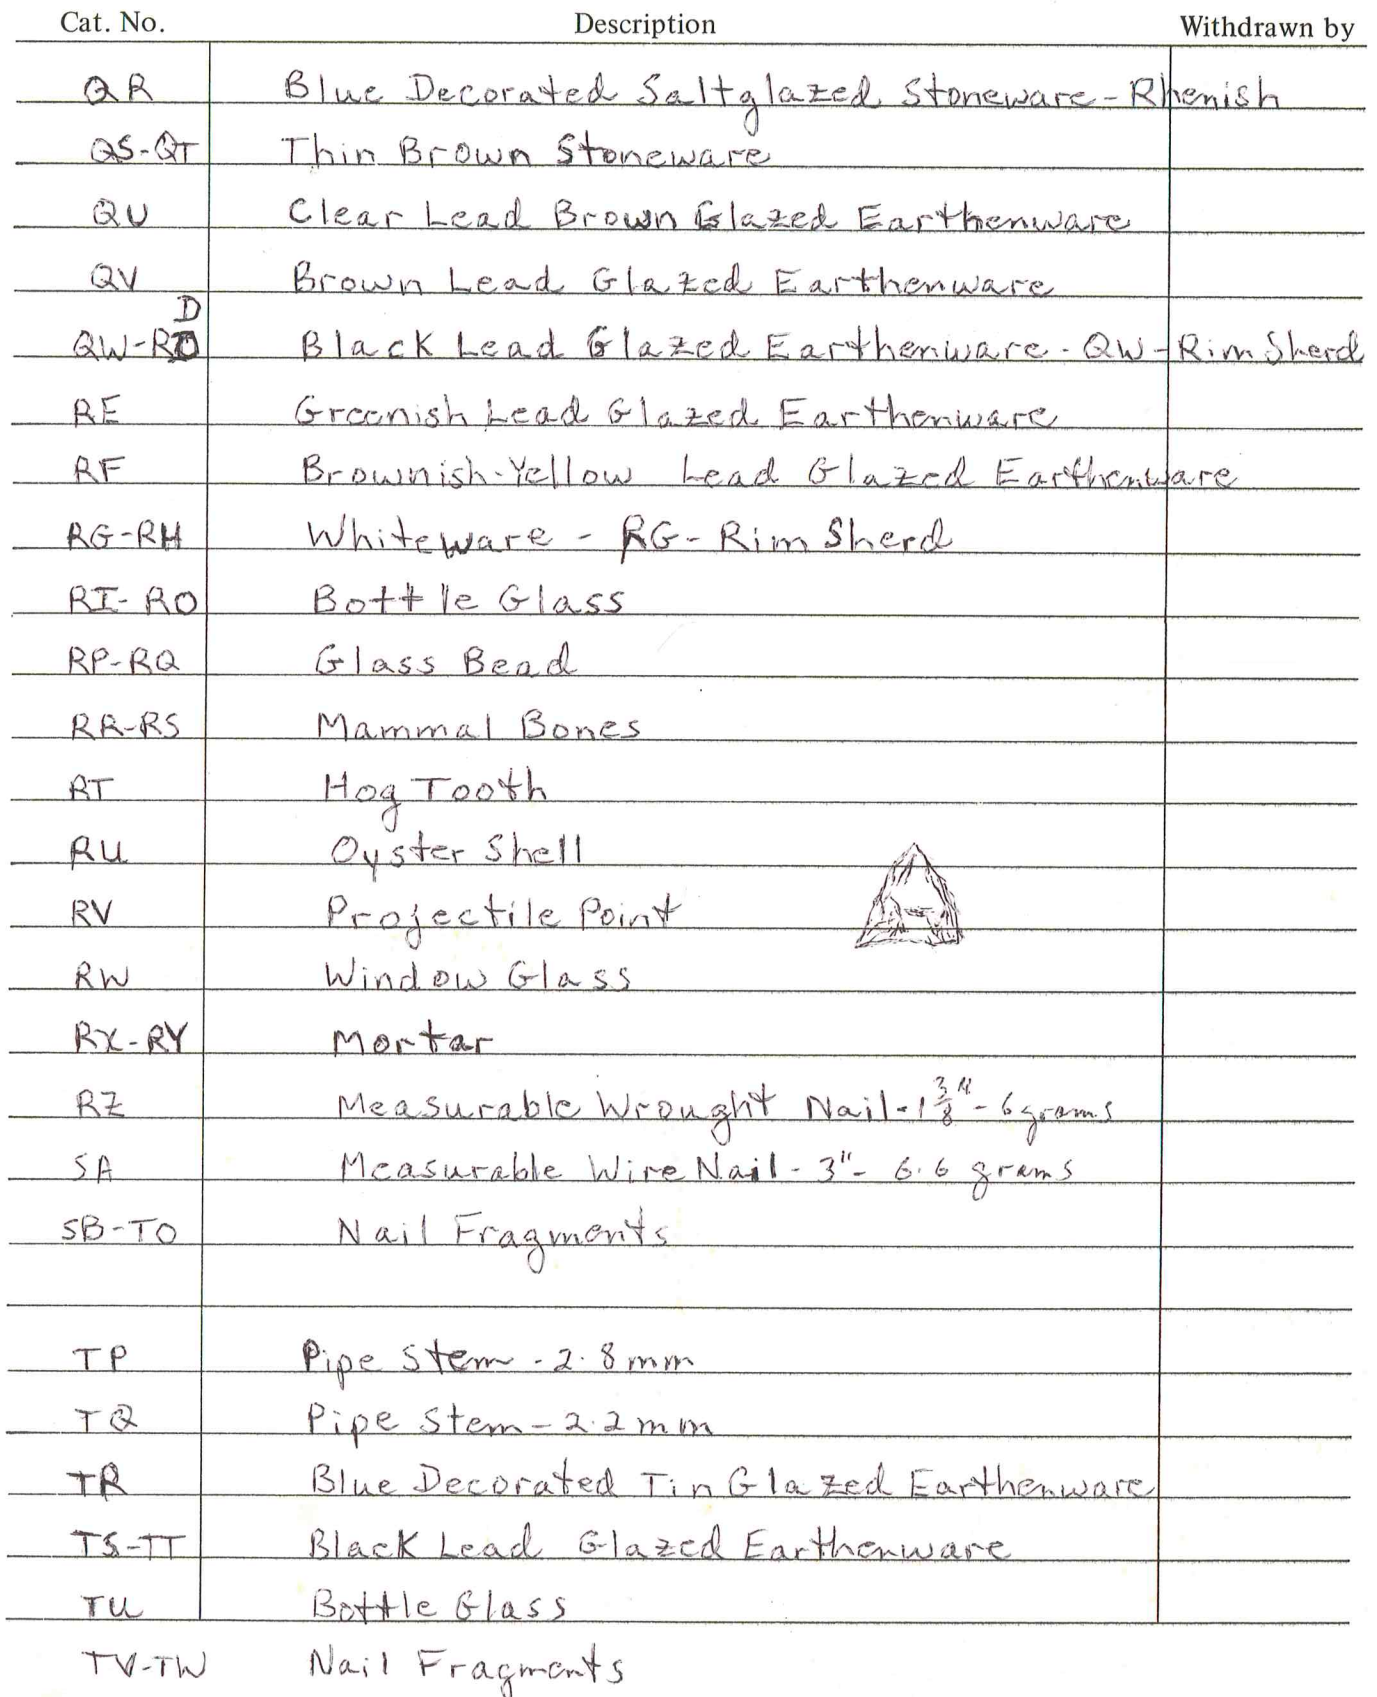 Cat. No. Description Withdrawn by
QR Blue Decorated Saltglazed Stoneware - Rhenish
QS-QT Thin Brown Stoneware
QU Clear Lead Brown Glazed Earthenware
QV Brown Lead Glazed Earthenware
D
QW-RD Black Lead Glazed Earthenware - QW - Rim Sherd
RE Greenish Lead Glazed Earthenware
RF Brownish-Yellow Lead Glazed Earthenware
RG-RH Whiteware - RG - Rim Sherd
RI-RO Bottle Glass
RP-RQ Glass Bead
RR-RS Mammal Bones
RT Hog Tooth
RU Oyster Shell
RV Projectile Point
RW Window Glass
RX-RY Mortar
RZ Measurable Wrought Nail - 1 3/8" - 6 grams
SA Measurable Wire Nail - 3" - 6.6 grams
SB-TO Nail Fragments
TP Pipe Stem - 2.8 mm
TQ Pipe Stem - 2.2 mm
TR Blue Decorated Tin Glazed Earthenware
TS-TT Black Lead Glazed Earthenware
TU Bottle Glass
TV-TW Nail Fragments